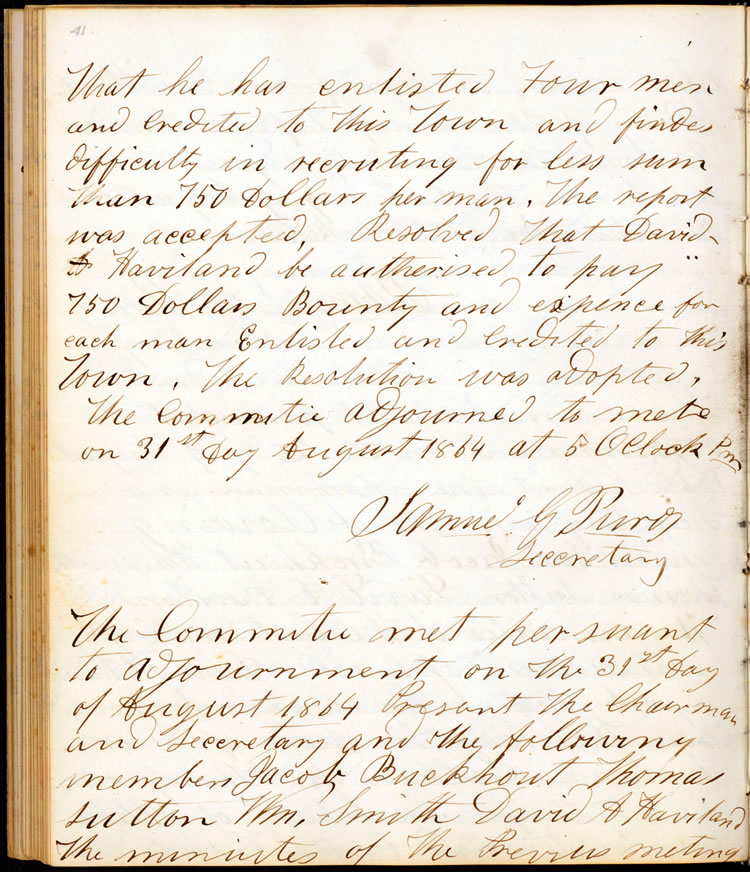 41
That he has enlisted Four men
and Credited to this Town and findes
difficulty in recruiting for less sum
than 750 Dollars per man. The report
was accepted, Resolved That David
Haviland be autherised to pay "
750 Dollars Bounty and expence for
each man Enlisted and Credited to this
Town. The Resolution was adopted.
The Committie adjourned to mete
on 31st day August 1864 at 5 OClock Pm
Samuel G
Seccretary
The Committie met persuant
to adjournment on the 31st day
of August 1864 Present The Chairman
and Seccretary and the following
members Jacob Buckhout Thomas
Sutton Wm. Smith David A Haviland
The miniutes of the Previus meting